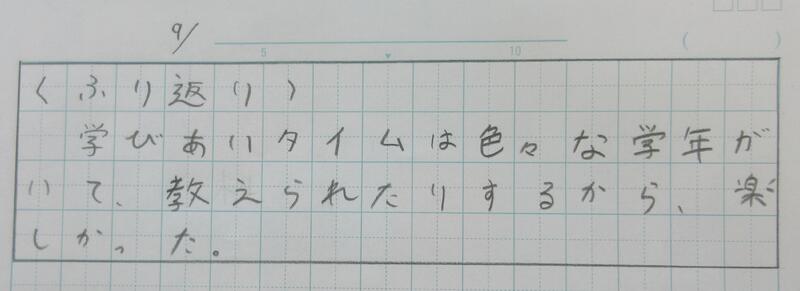 9/
5 10 ( )
〈ふり返り〉
学びあいタイムは色々な学年が
いて、教えられたりするから、楽
しかった。